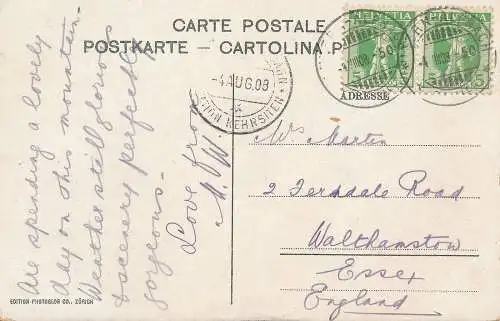 CARTE POSTALE
POSTKARTE – CARTOLINA P
HELVETIA
HELVETIA
5
5
-4 AUG. 09
KEHRSITEN
ADRESSE
Are spending a lovely
day on this mountain.
Weather still glorious
& scenery perfectly
gorgeous.
Love from
Mrs Martin
2 Ferndale Road
Walthamstow
Essex
England
EDITION PHOTOGLOB CO., ZÜRICH